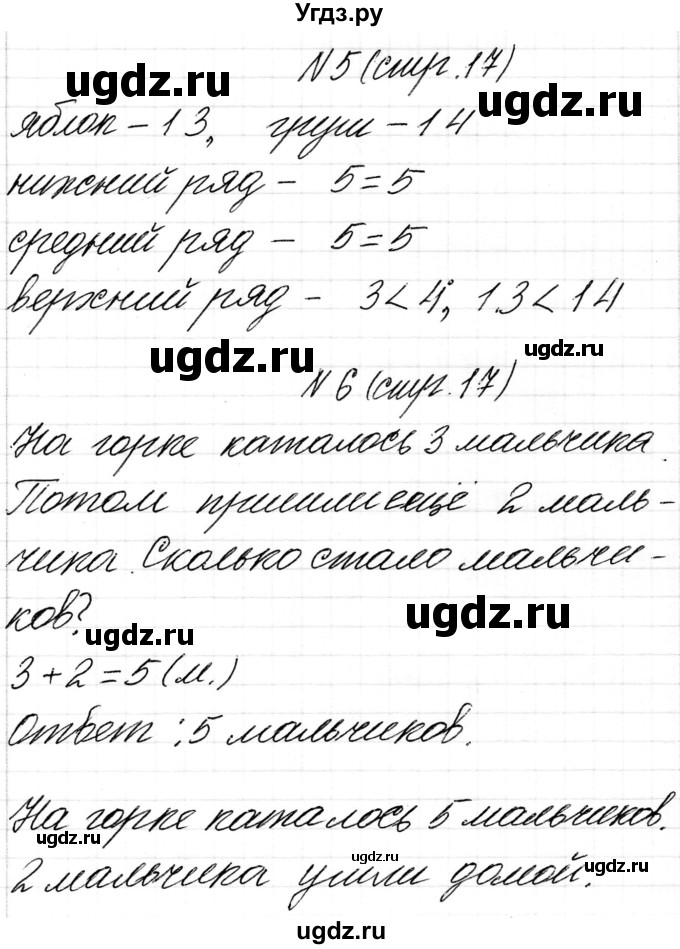 Угдз.ру
N5 (стр. 17)
ugdz.ru
ugdz.ru
яблок - 13, груш - 14
нижний ряд - 5 = 5
средний ряд - 5 = 5
верхний ряд - 3 < 4, 13 < 14
ugdz.ru
ugdz.ru
N 6 (стр. 17)
На горке каталось 3 мальчика.
Потом пришли ещё 2 маль-
чика. Сколько стало мальчи-
ков?
ugdz.ru
ugdz.ru
3 + 2 = 5 (м.)
Ответ: 5 мальчиков.
На горке каталось 5 мальчиков.
ugdz.ru
ugdz.ru
ugdz.ru
2 мальчика ушли домой.
ugdz.ru